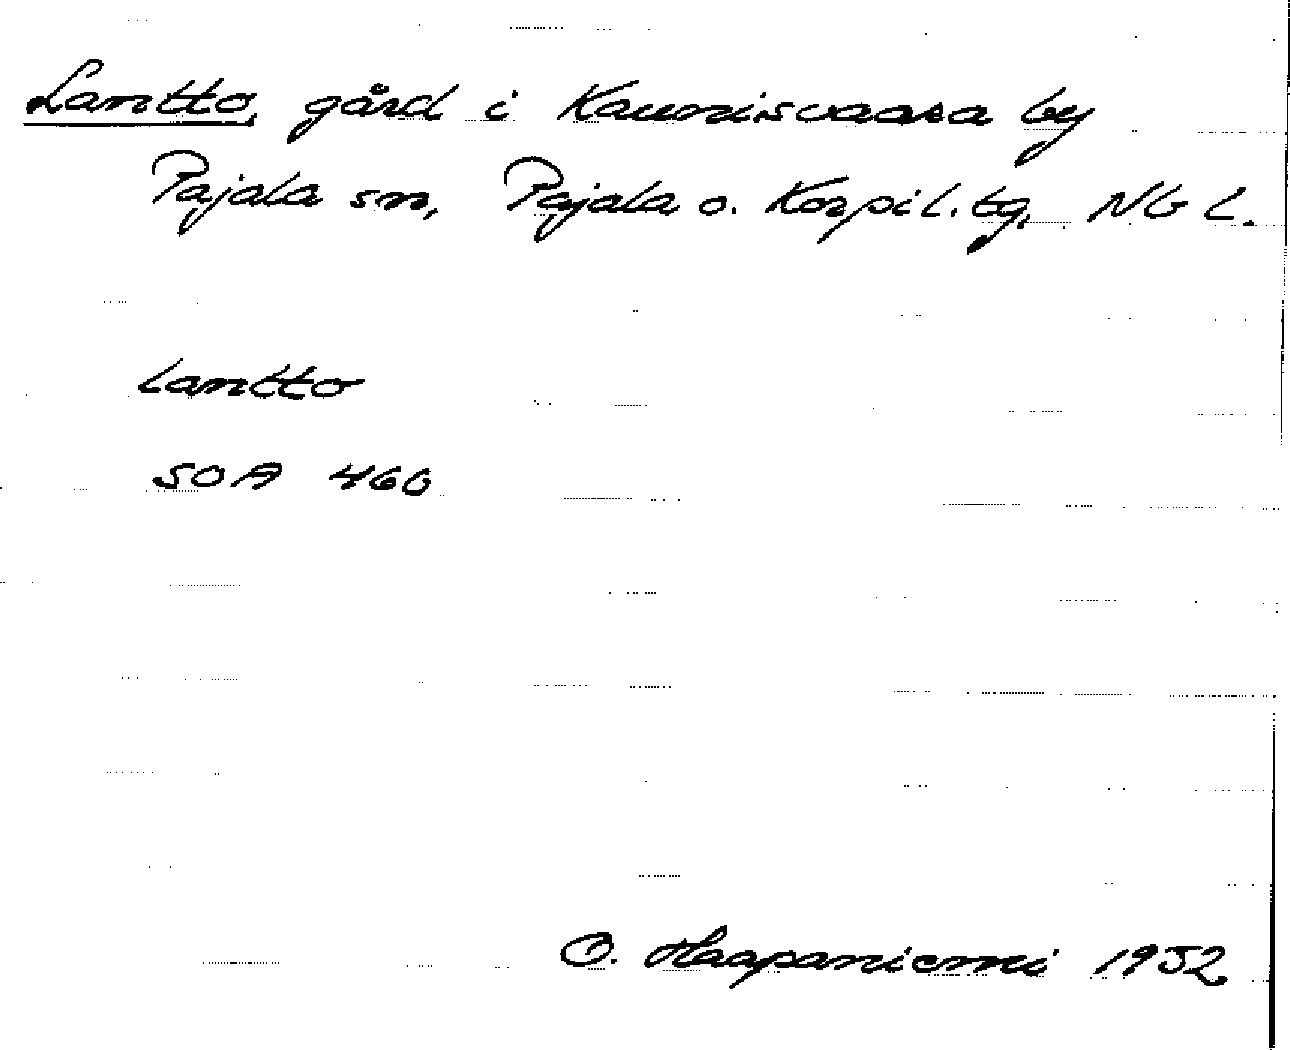 Lantto, gård i Kaunisvaara by
Pajala sn, Pajala o. Korpil. tg, NB L.
Lantto
SOA 460
O. Haapaniemi 1952